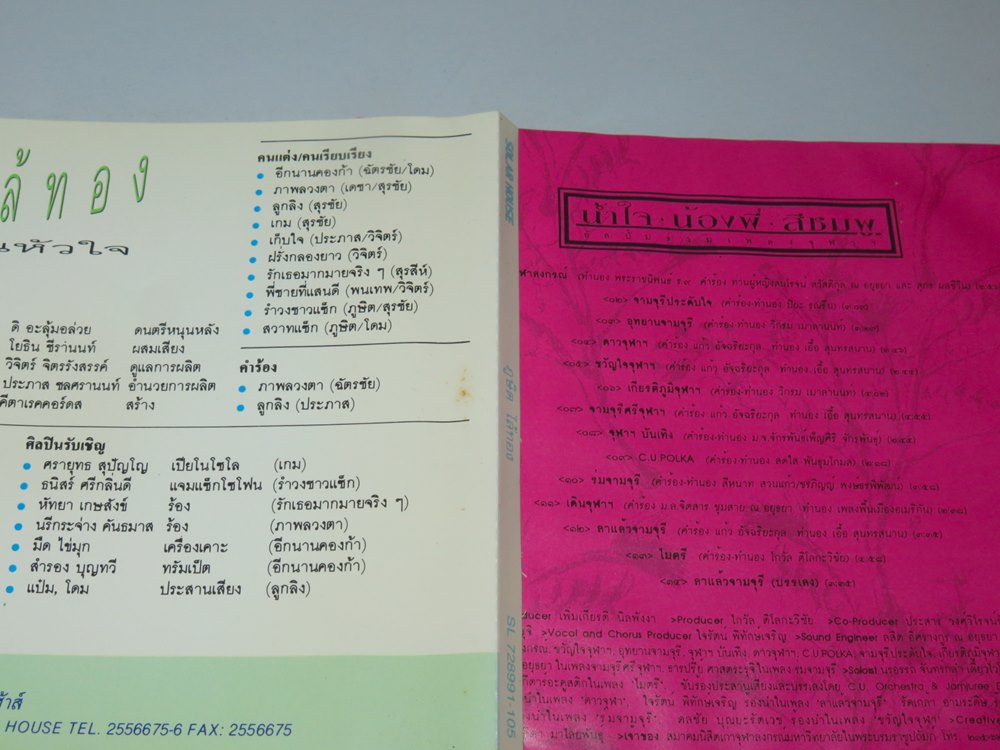 ล้ทอง
นหัวใจ
ดิ อะลุ้มอล่วย ดนตรีหนุนหลัง
โยธิน ชีรานนท์ ผสมเสียง
วิจิตร์ จิตรรังสรรค์ ดูแลการผลิต
ประภาส ชลศรานนท์ อำนวยการผลิต
คีตาเรคคอร์ดส สร้าง
ศิลปินรับเชิญ
ศรายุทธ สุปัญโญ เปียโนโซโล (เกม)
ธนิสร์ ศรีกลิ่นดี แจมแซ็กโซโฟน (รำวงซาวแช็ก)
หัทยา เกษสังข์ ร้อง (รักเธอมากมายจริง ๆ)
นรีกระจ่าง คันธมาส ร้อง (ภาพลวงตา)
มืด ไข่มุก เครื่องเคาะ (อีกนานคองก้า)
สำรอง บุญทวี ทรัมเป็ต (อีกนานคองก้า)
แป๋ม, โดม ประสานเสียง (ลูกลิง)
HOUSE TEL. 2556675-6 FAX: 2556675
คนแต่ง/คนเรียบเรียง
อีกนานคองก้า (ฉัตรชัย/โดม)
ภาพลวงตา (เดชา/สุรชัย)
ลูกลิง (สุรชัย)
เกม (สุรชัย)
เก็บใจ (ประภาส/วิจิตร์)
ฝรั่งกลองยาว (วิจิตร์)
รักเธอมากมายจริง ๆ (สุรสีห์)
พี่ชายที่แสนดี (พนเทพ/วิจิตร์)
รำวงซาวแช็ก (ภูษิต/สุรชัย)
สวาทแช็ก (ภูษิต/โดม)
คำร้อง
ภาพลวงตา (ฉัตรชัย)
ลูกลิง (ประภาส)
SOLAR HOUSE
ภูษิต ไล้ทอง
SL 728991-105
น้ำใจ · น้องพี่ · สีชมพู
อัลบั้มรวมเพลงจุฬาฯ
ฬาลงกรณ์ (ทำนอง พระราชนิพนธ์ ร.๙ คำร้อง ท่านผู้หญิงสมโรจน์ สวัสดิกุล ณ อยุธยา และ สุภร ผลชีวิน)
<๐๒> จามจุรีประดับใจ (คำร้อง-ทำนอง ปิยะ รณชื่น) (๓:๐๗)
<๐๓> อุทยานจามจุรี (คำร้อง-ทำนอง วีกรม เมาลานนท์)
<๐๔> ดาวจุฬาฯ (คำร้อง แก้ว อัจฉริยะกุล ทำนอง เอื้อ สุนทรสนาน)
<๐๕> ขวัญใจจุฬาฯ (คำร้อง แก้ว อัจฉริยะกุล ทำนอง เอื้อ สุนทรสนาน)
<๐๖> เกียรติภูมิจุฬาฯ (คำร้อง-ทำนอง วีกรม เมาลานนท์)
<๐๗> จามจุรีศรีจุฬาฯ (คำร้อง แก้ว อัจฉริยะกุล ทำนอง เอื้อ สุนทรสนาน)
<๐๘> จุฬาฯ บันเทิง (คำร้อง-ทำนอง ม.จ.จักรพันธ์เพ็ญศิริ จักรพันธุ์)
<๐๙> C.U.POLKA
<๑๐> ร่มจามจุรี (คำร้อง-ทำนอง
<๑๑> เดินจุฬาฯ (คำร้อง ม.ล.จิตสาร ชุมสาย ณ อยุธยา ทำนอง เพลงพื้นเมืองอเมริกัน)
<๑๒> ลาแล้วจามจุรี (คำร้อง แก้ว อัจฉริยะกุล ทำนอง เอื้อ สุนทรสนาน) (๓:๓๕)
<๑๓> ไมตรี (คำร้อง-ทำนอง ไกวัล ติโลกะวิชัย)
<๑๔> ลาแล้วจามจุรี (บรรเลง) (๓:๓๕)
ducer เพิ่มเกียรติ นิลพังงา >Producer ไกวัล ติโลกะวิชัย >Co-Producer ประสาร
>Vocal and Chorus Producer ไจรัตน์ พิทักษ์เจริญ >Sound Engineer
ขวัญใจจุฬาฯ, อุทยานจามจุรี, จุฬาฯ บันเทิง, ดาวจุฬาฯ, C.U.POLKA, จามจุรีประดับใจ, เกียรติภูมิจุฬาฯ
ในเพลงจามจุรีศรีจุฬาฯ, >Soloist
ในเพลง "ไมตรี" C.U. Orchestra & Jamjuree
"ดาวจุฬาฯ", ไจรัตน์ พิทักษ์เจริญ ร้องนำในเพลง "ลาแล้วจามจุรี"
"ร่มจามจุรี", ร้องนำในเพลง "ขวัญใจจุฬาฯ" >Creative
>เจ้าของ สมาคมนิสิตเก่าจุฬาลงกรณ์มหาวิทยาลัยในพระบรมราชูปถัมภ์ โทร.